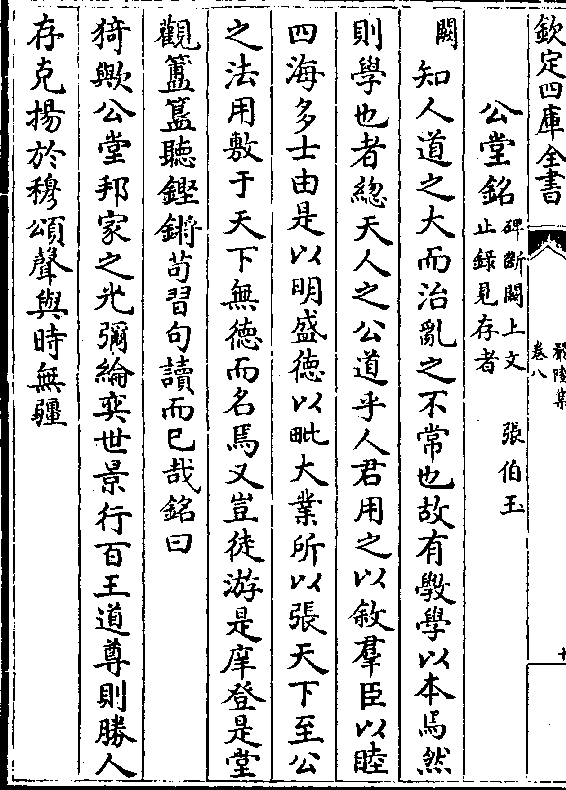 欽定四庫全書
卷八
公堂銘 碑斷闕上文止錄見存者 張伯玉
闕知人道之大而治亂之不常也故有斆學以本焉然
則學也者總天人之公道乎人君用之以敘羣臣以睦
四海多士由是以明盛德以毗大業所以張天下至公
之法用敷于天下無德而名焉又豈徒游是庠登是堂
觀簠簋聽鏗鏘苟習句讀而已哉銘曰
猗歟公堂邦家之光彌綸奕世景行百王道尊則勝人
存克揚於穆頌聲與時無疆